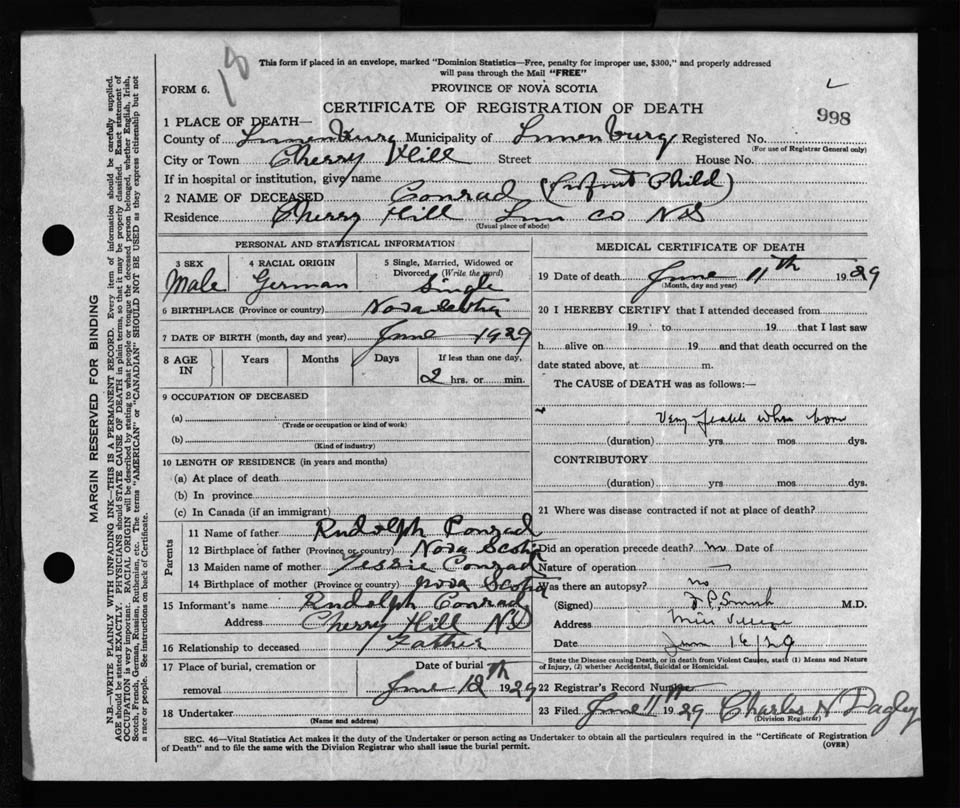 18
This form if placed in an envelope, marked "Dominion Statistics—Free, penalty for improper use, $300," and properly addressed
will pass through the Mail "FREE"
FORM 6.
PROVINCE OF NOVA SCOTIA
998
CERTIFICATE OF REGISTRATION OF DEATH
1 PLACE OF DEATH—
County of Lunenburg Municipality of Lunenburg Registered No.
(For use of Registrar General only)
City or Town Cherry Hill Street House No.
If in hospital or institution, give name
2 NAME OF DECEASED Conrad (Infant Child)
Residence Cherry Hill Lun Co NS
(Usual place of abode)
PERSONAL AND STATISTICAL INFORMATION
3 SEX 4 RACIAL ORIGIN 5 Single, Married, Widowed or
Divorced. (Write the word)
Male German Single
6 BIRTHPLACE (Province or country) Nova Scotia
7 DATE OF BIRTH (month, day and year) June 1929
8 AGE IN Years Months Days If less than one day,
2 hrs. or min.
9 OCCUPATION OF DECEASED
(a)
(Trade or occupation or kind of work)
(b)
(Kind of industry)
10 LENGTH OF RESIDENCE (in years and months)
(a) At place of death
(b) In province
(c) In Canada (if an immigrant)
Parents
11 Name of father Rudolph Conrad
12 Birthplace of father (Province or country) Nova Scotia
13 Maiden name of mother Conrad
14 Birthplace of mother (Province or country) Nova Scotia
15 Informant's name Rudolph Conrad
Address Cherry Hill NS
16 Relationship to deceased Father
17 Place of burial, cremation or Date of burial
removal June 12th 1929
18 Undertaker
(Name and address)
MEDICAL CERTIFICATE OF DEATH
19 Date of death June 11th 1929
(Month, day and year)
20 I HEREBY CERTIFY that I attended deceased from
19 to 19 that I last saw
h alive on 19 and that death occurred on the
date stated above, at m.
The CAUSE of DEATH was as follows:—
Very feable when born
(duration) yrs mos dys.
CONTRIBUTORY
(duration) yrs. mos. dys.
21 Where was disease contracted if not at place of death?
Did an operation precede death? no Date of
Nature of operation —
Was there an autopsy? no
(Signed) M.D.
Address
Date June 16/29
State the Disease causing Death, or in death from Violent Causes, state (1) Means and Nature
of Injury, (2) whether Accidental, Suicidal or Homicidal.
22 Registrar's Record Number
23 Filed June 11th 1929 Charles N Dagley
(Division Registrar)
SEC. 46—Vital Statistics Act makes it the duty of the Undertaker or person acting as Undertaker to obtain all the particulars required in the "Certificate of Registration
of Death" and to file the same with the Division Registrar who shall issue the burial permit.
(OVER)
MARGIN RESERVED FOR BINDING
N.B—WRITE PLAINLY WITH UNFADING INK—THIS IS A PERMANENT RECORD. Every item of information should be carefully supplied.
AGE should be stated EXACTLY. PHYSICIANS should STATE CAUSE OF DEATH in plain terms, so that it may be properly classified. Exact statement of
OCCUPATION is very important. RACIAL ORIGIN will be described by stating to what people or tongue the deceased person belonged, whether English, Irish,
Scotch, French, German, Russian, Ruthenian, etc. The terms "AMERICAN" or "CANADIAN" SHOULD NOT BE USED as they express citizenship but not
a race or people. See instructions on back of Certificate.